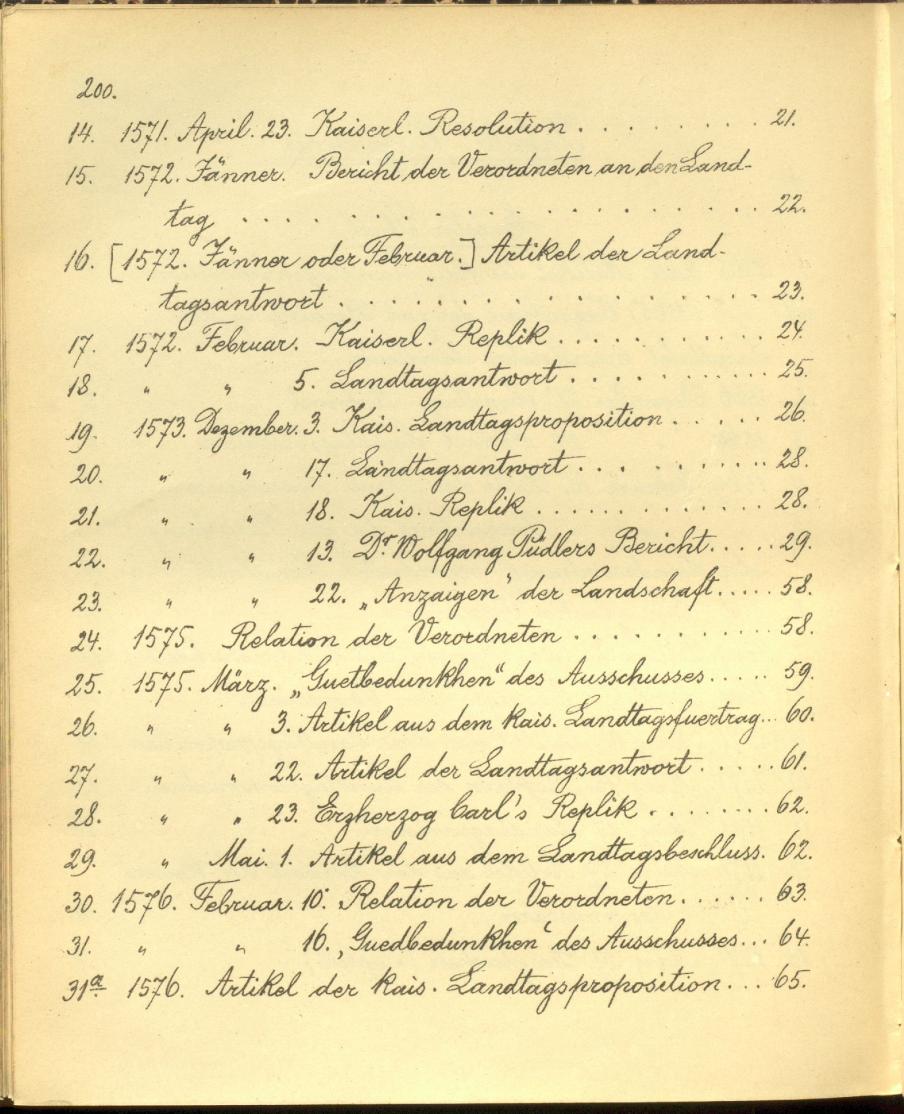 200.
14. 1571. April. 23. Kaiserl. Resolution . . . . . . . . 21.
15. 1572. Jänner. Bericht der Verordneten an den Land-
tag . . . . . . . . . . . . . . . . . . . 22.
16. [1572. Jänner oder Februar.] Artikel der Land-
tagsantwort . . . . . . . . . . . . . . . 23.
17. 1572. Februar. Kaiserl. Replik . . . . . . . . . . . 24.
18. " " 5. Landtagsantwort . . . . . . . . . . 25.
19. 1573. Dezember. 3. Kais. Landtagsproposition . . . . . 26.
20. " " 17. Landtagsantwort . . . . . . . . . 28.
21. " " 18. Kais. Replik . . . . . . . . . . . . 28.
22. " " 13. Dr. Wolfgang Püdlers Bericht. . . . . 29.
23. " " 22. „Anzaigen" der Landschaft. . . . . 58.
24. 1575. Relation der Verordneten . . . . . . . . . . 58.
25. 1575. März. „Guetbedunkhen" des Ausschusses . . . . . 59.
26. " " 3. Artikel aus dem kais. Landtagsfuertrag . . 60.
27. " " 22. Artikel der Landtagsantwort . . . . . 61.
28. " " 23. Erzherzog Carl's Replik . . . . . . . . 62.
29. " Mai. 1. Artikel aus dem Landtagsbeschluss. 62.
30. 1576. Februar. 10. Relation der Verordneten . . . . . . 63.
31. " " 16. „Guedbedunkhen" des Ausschusses . . . 64.
31a 1576. Artikel der kais. Landtagsproposition . . . 65.